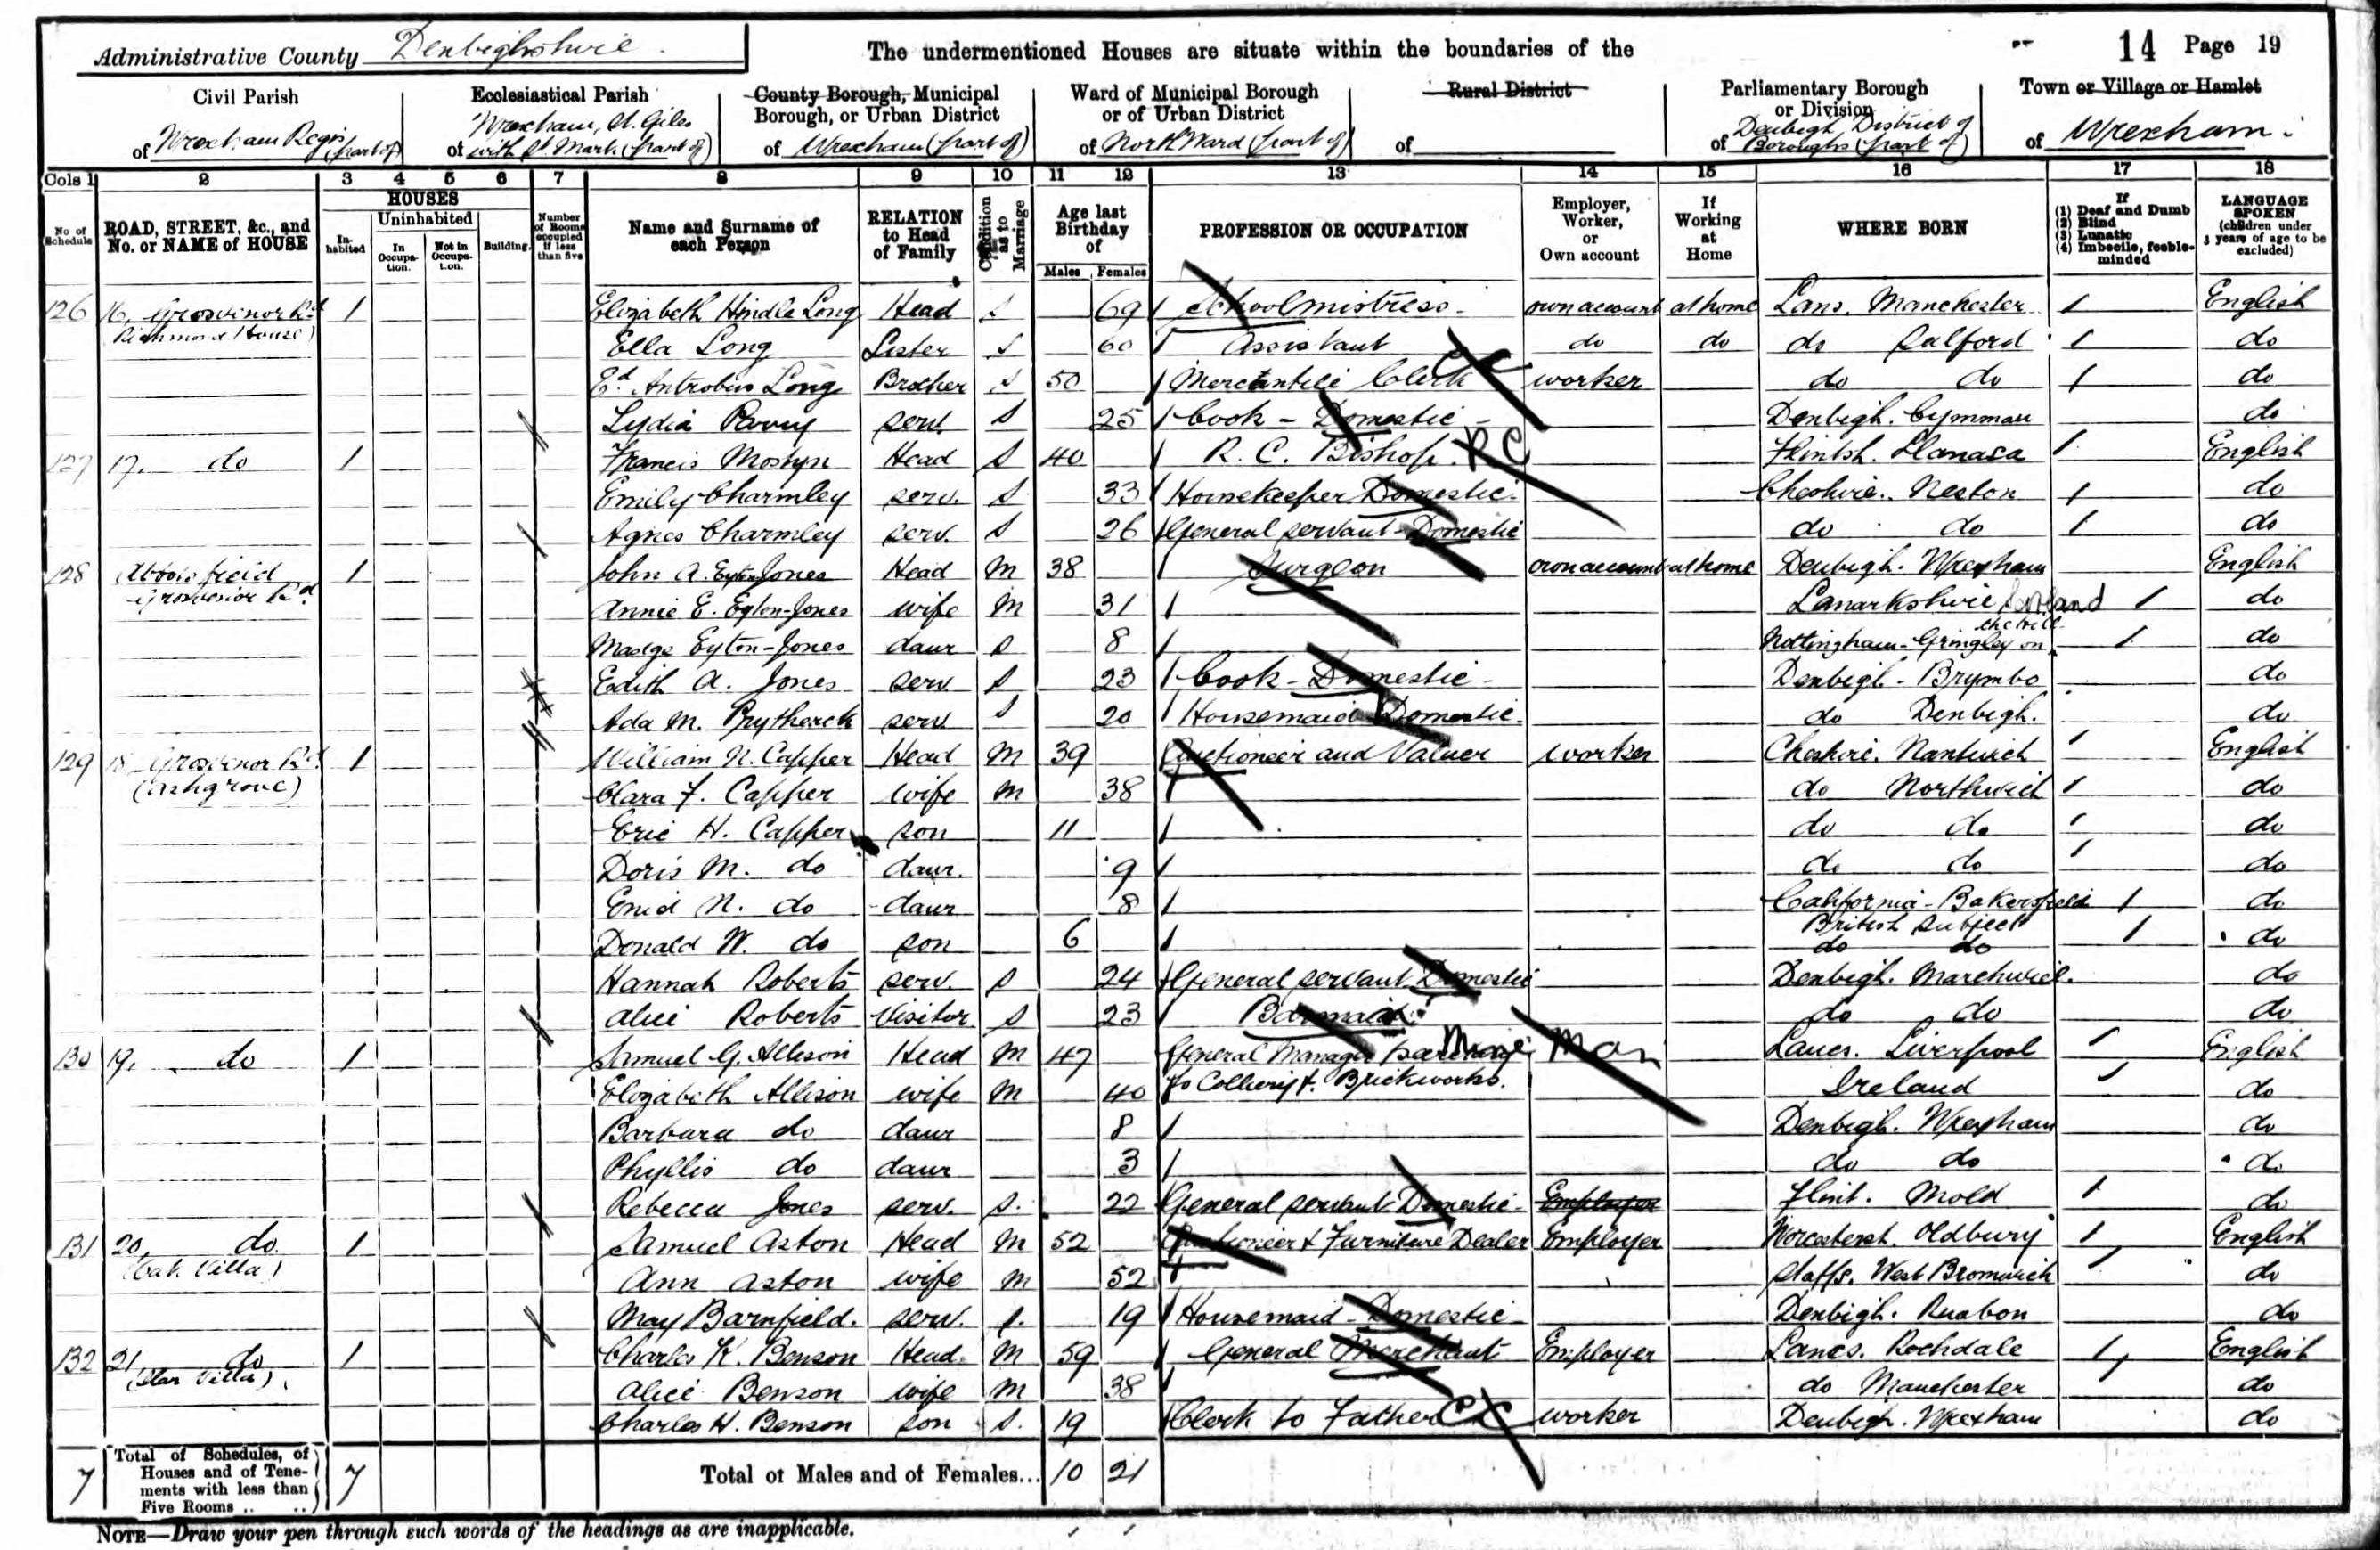 Administrative County Denbighshire. The undermentioned Houses are situate within the boundaries of the 14 Page 19
Civil Parish Ecclesiastical Parish County Borough, Municipal Borough, or Urban District Ward of Municipal Borough or of Urban District Rural District Parliamentary Borough or Division Town or Village or Hamlet
of Wrexham Regis (part of) of Wrexham, St. Giles with St Mark (part of) of Wrexham (part of) of North Ward (part of) of of Denbigh District of Boroughs (part of) of Wrexham.
Cols 1 2 3 4 5 6 7 8 9 10 11 12 13 14 15 16 17 18
No of Schedule ROAD, STREET, &c., and No. or NAME of HOUSE HOUSES Inhabited Uninhabited In Occupation. Not in Occupation. Building. Number of Rooms occupied if less than five Name and Surname of each Person RELATION to Head of Family Condition as to Marriage Age last Birthday of Males Females PROFESSION OR OCCUPATION Employer, Worker, or Own account If Working at Home WHERE BORN If (1) Deaf and Dumb (2) Blind (3) Lunatic (4) Imbecile, feeble-minded LANGUAGE SPOKEN (children under 3 years of age to be excluded)
126 16, Grosvenor Rd 1 Elizabeth Hindle Long Head S 69 Schoolmistress own account at home Lans. Manchester English
(Richmond House) Ella Long Sister S 60 Assistant do do do Salford do
Ed. Antrobus Long Brother S 50 Mercantile Clerk worker do do do
Lydia serv. S 25 Cook - Domestic - Denbigh. Cymmau do
127 17. do 1 Francis Mostyn Head S 40 R. C. Bishop. RC Flintsh. Llanasa English
Emily Charmley serv. S 33 Housekeeper Domestic Cheshire. Neston do
Agnes Charmley serv. S 26 General servant - Domestic do do do
128 Abbotsfield 1 John A. Eyton-Jones Head M 38 Surgeon own account at home Denbigh. Wrexham English
Grosvenor Rd Annie E. Eyton-Jones wife M 31 Lanarkshire Scotland do
Madge Eyton-Jones daur S 8 Nottingham - Gringley on the hill do
Edith A. Jones serv S 23 Cook - Domestic - Denbigh - Brymbo do
Ada M. Prytherch serv S 20 Housemaid Domestic. do Denbigh. do
129 18 Grosvenor Rd 1 William N. Capper Head M 39 Auctioneer and Valuer worker Cheshire. Nantwich English
(Ashgrove) Clara F. Capper wife M 38 do Northwich do
Eric H. Capper son 11 do do do
Doris M. do daur. 9 do do do
Enid N. do daur 8 California - Bakersfield do
Donald W. do son 6 British Subject do do do
Hannah Roberts serv. S 24 General servant Domestic Denbigh. Marchwiel. do
Alice Roberts Visitor S 23 Barmaid do do do
130 19. do 1 Samuel G. Allison Head M 47 General Manager Mine Man Lancs. Liverpool English
Elizabeth Allison wife M 40 to Colliery & Brickworks. Ireland do
Barbara do daur 8 Denbigh. Wrexham do
Phyllis do daur 3 do do do
Rebecca Jones serv. S. 22 General servant - Domestic - Employer Flint. Mold do
131 20, do 1 Samuel Aston Head M 52 Auctioneer & Furniture Dealer Employer Worcestersh. Oldbury English
(Oak Villa) Ann Aston wife M 52 Staffs. West Bromwich do
May Barnfield. serv. S. 19 Housemaid - Domestic - Denbigh. Ruabon do
132 21 do 1 Charles K. Benson Head M 59 General Merchant Employer Lancs. Rochdale English
Alice Benson wife M 38 do Manchester do
Charles H. Benson son S. 19 Clerk to Father CC worker Denbigh. Wrexham do
7 Total of Schedules, of Houses and of Tenements with less than Five Rooms .. .. 7 Total of Males and of Females... 10 21
NOTE—Draw your pen through such words of the headings as are inapplicable.